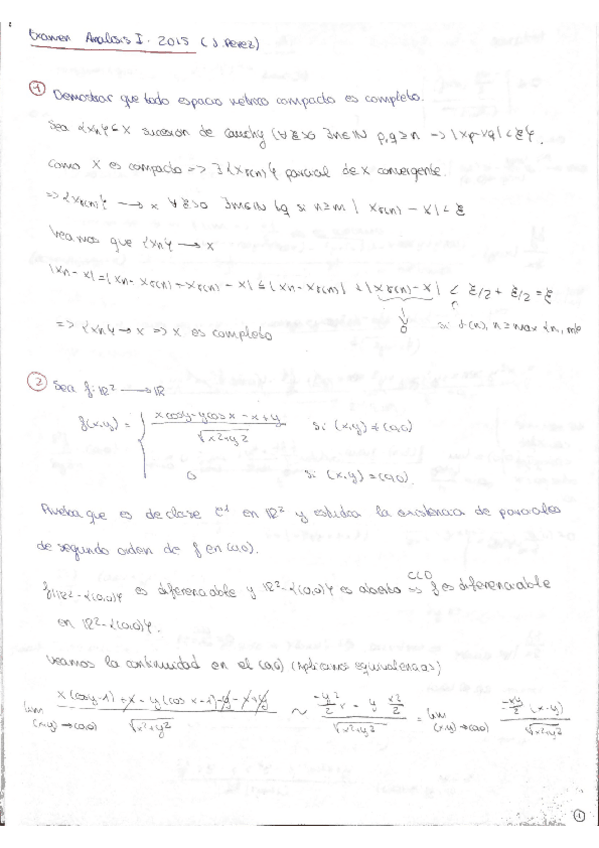 Examen Analisis I. 2015 (J. Perez)
1 Demostrar que todo espacio metrico compacto es completo.
Sea {xn} ⊆ X sucesion de Cauchy (∀ε>0 ∃n∈IN p,q≥n → |xp-xq|<ε}.
Como X es compacto => ∃{xσ(n)} parcial de x convergente.
=> {xσ(n)} → x ∀ε>0 ∃m∈IN tq si n≥m | xσ(n) - x|<ε
Veamos que {xn} → x
|xn-x|=|xn-xσ(n)+xσ(n)-x| ≤ |xn-xσ(n)| + |xσ(n)-x| < ε/2 + ε/2 = ε
0 si σ(n), n ≥ max {n, m}
=> {xn} → x => X es completo
2 Sea f: IR² → IR
f(x,y) = { (x cosy - y cos x - x + y) / √(x²+y²) si (x,y) ≠ (0,0)
0 si (x,y) = (0,0).
Prueba que es de clase C¹ en IR² y estudia la existencia de parciales
de segundo orden de f en (0,0).
f|IR²-{(0,0)} es diferenciable y IR²-{(0,0)} es abierto CLD => f es diferenciable
en IR²-{(0,0)}.
Veamos la continuidad en el (0,0) (Aplicamos equivalencias)
lim (x,y)→(0,0) (x(cosy-1)+x - y(cos x -1) - y - x + y) / √(x²+y²) ~ (-y²/2 x - y x²/2) / √(x²+y²) = lim (x,y)→(0,0) (-xy/2 (x-y)) / √(x²+y²)
1